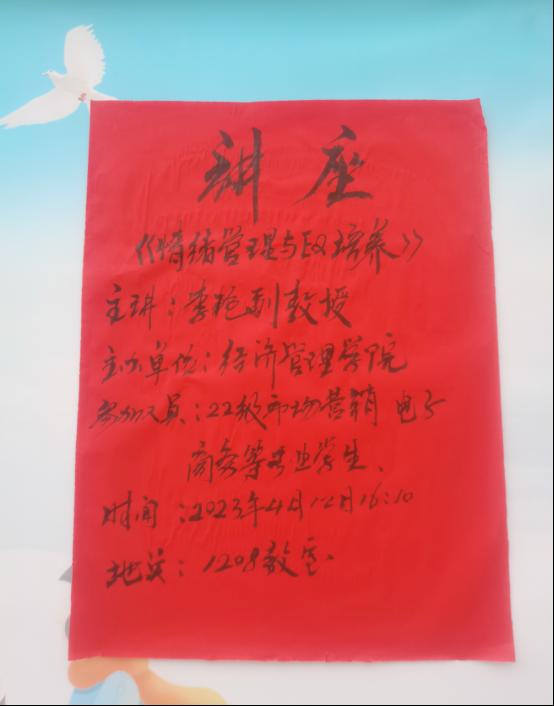 讲座
《情绪管理与EQ培养》
主讲：李艳副教授
主办单位：经济管理学院
参加人员：22级市场营销 电子
商务等专业学生、
时间：2023年4月12日16:10
地点：1208教室